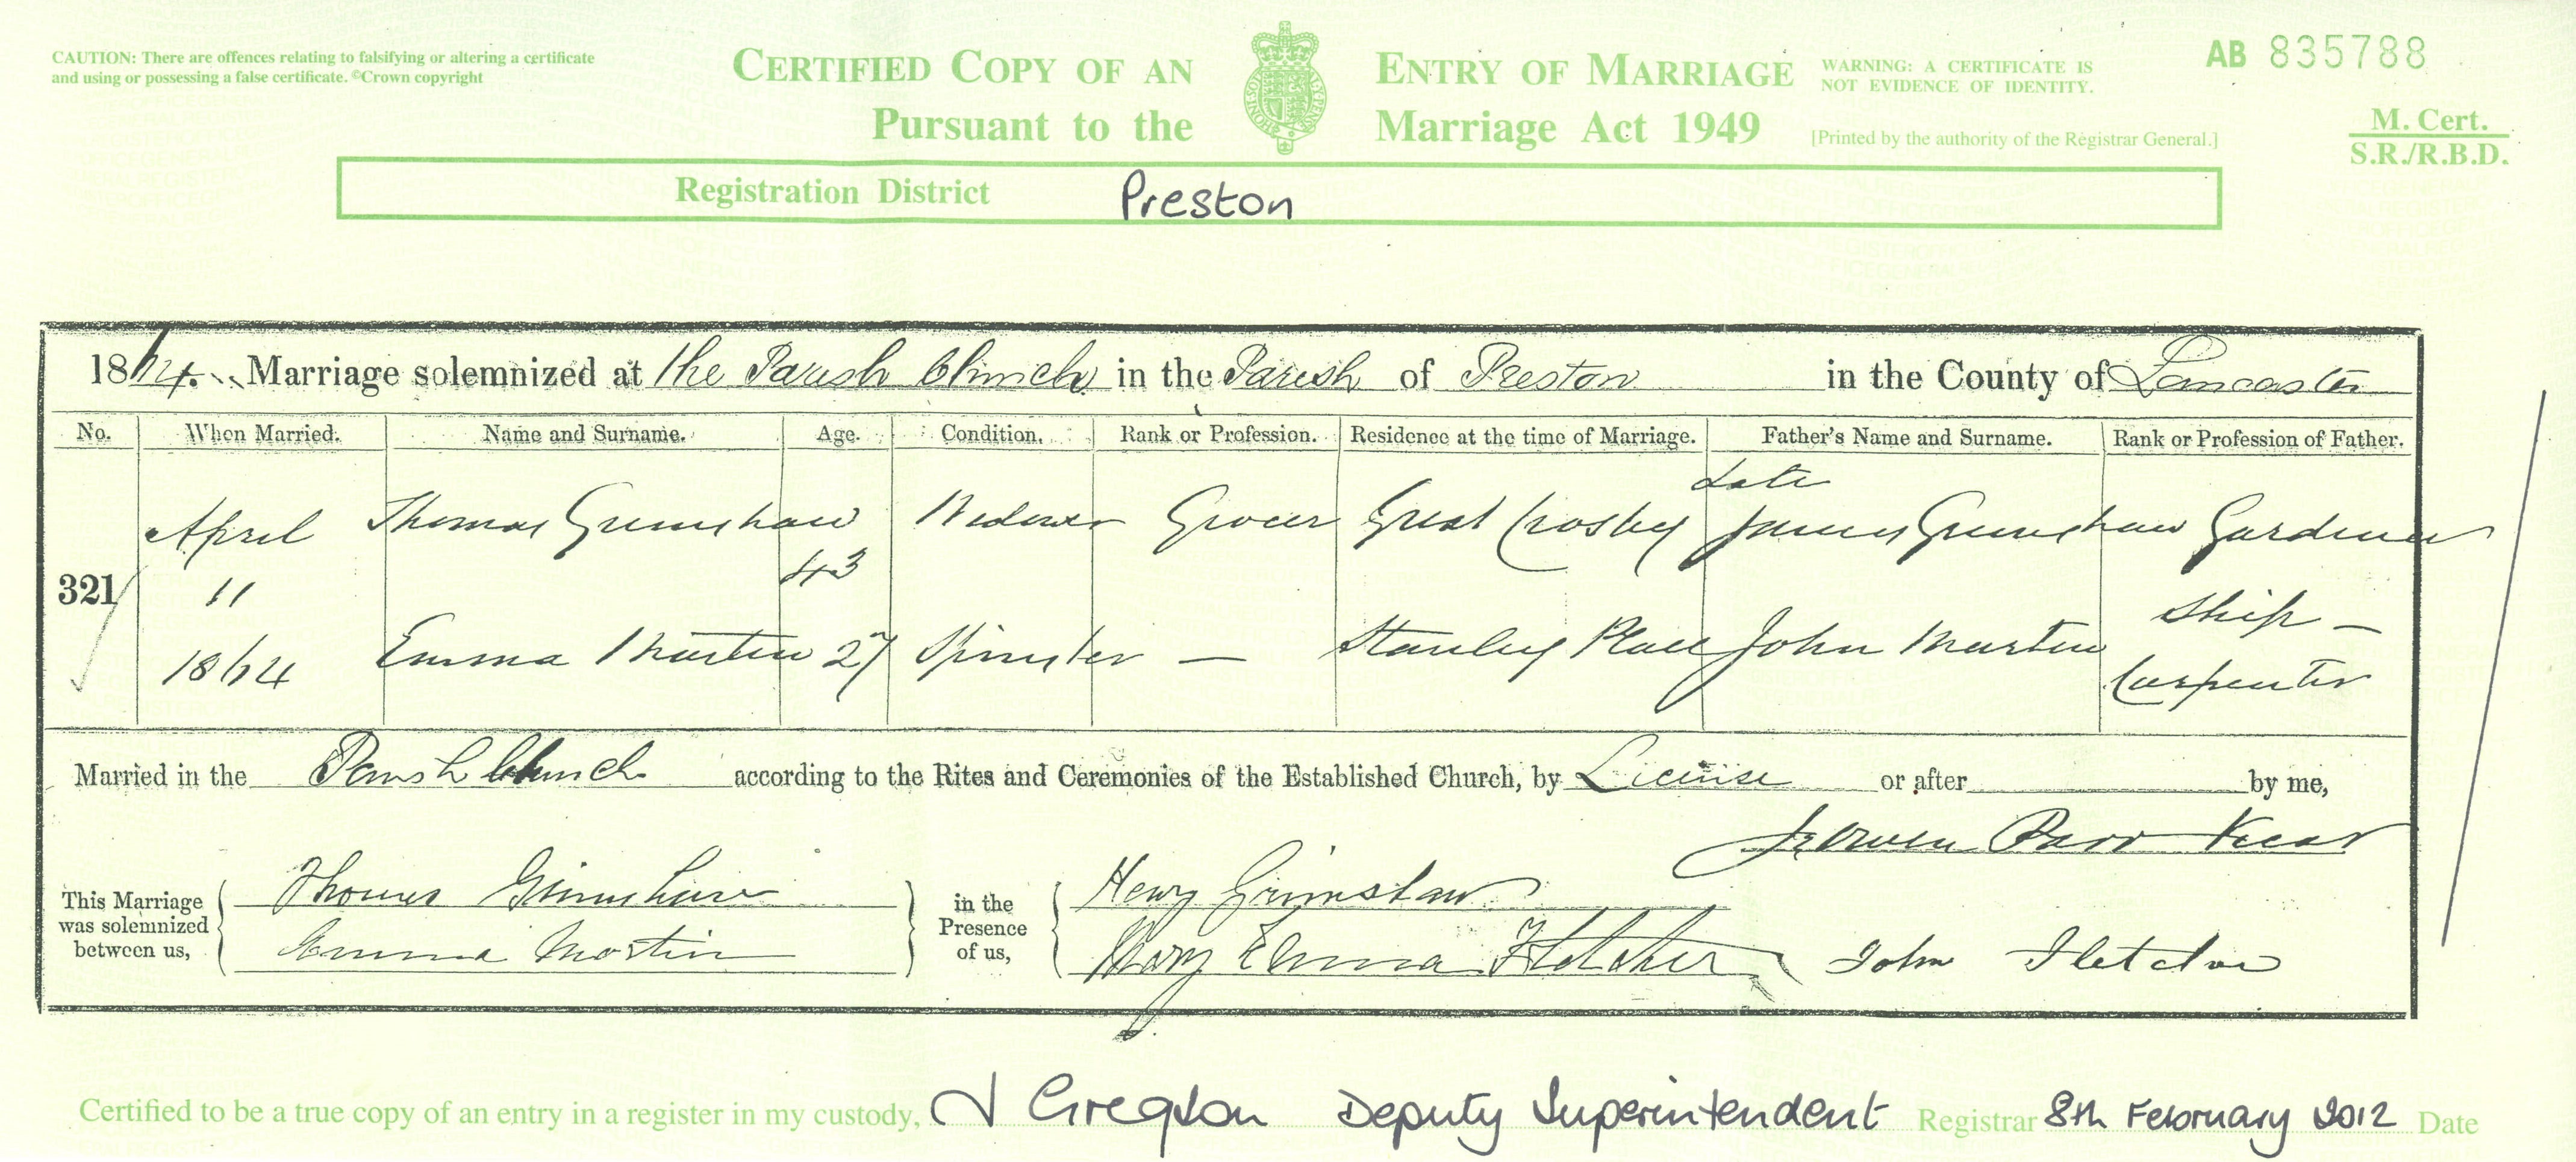 CAUTION: There are offences relating to falsifying or altering a certificate
and using or possessing a false certificate. ©Crown copyright
CERTIFIED COPY OF AN ENTRY OF MARRIAGE
Pursuant to the Marriage Act 1949
WARNING: A CERTIFICATE IS
NOT EVIDENCE OF IDENTITY.
[Printed by the authority of the Registrar General.]
AB 835788
M. Cert.
S.R./R.B.D.
Registration District Preston
1864. Marriage solemnized at the Parish Church in the Parish of Preston in the County of Lancaster
No. When Married. Name and Surname. Age. Condition. Rank or Profession. Residence at the time of Marriage. Father's Name and Surname. Rank or Profession of Father.
321
April
11
1864
Thomas Grimshaw 43 Widower Grocer Great Crosby late James Grimshaw Gardener
Emma Martin 27 Spinster — Stanley Place John Martin Ship-Carpenter
Married in the Parish Church according to the Rites and Ceremonies of the Established Church, by License or after by me,
Owen Parr Vicar
This Marriage
was solemnized
between us,
Thomas Grimshaw
Emma Martin
in the
Presence
of us,
Henry Grimshaw
Mary Emma Fletcher John Fletcher
Certified to be a true copy of an entry in a register in my custody, Gregson Deputy Superintendent Registrar 8th February 2012 Date